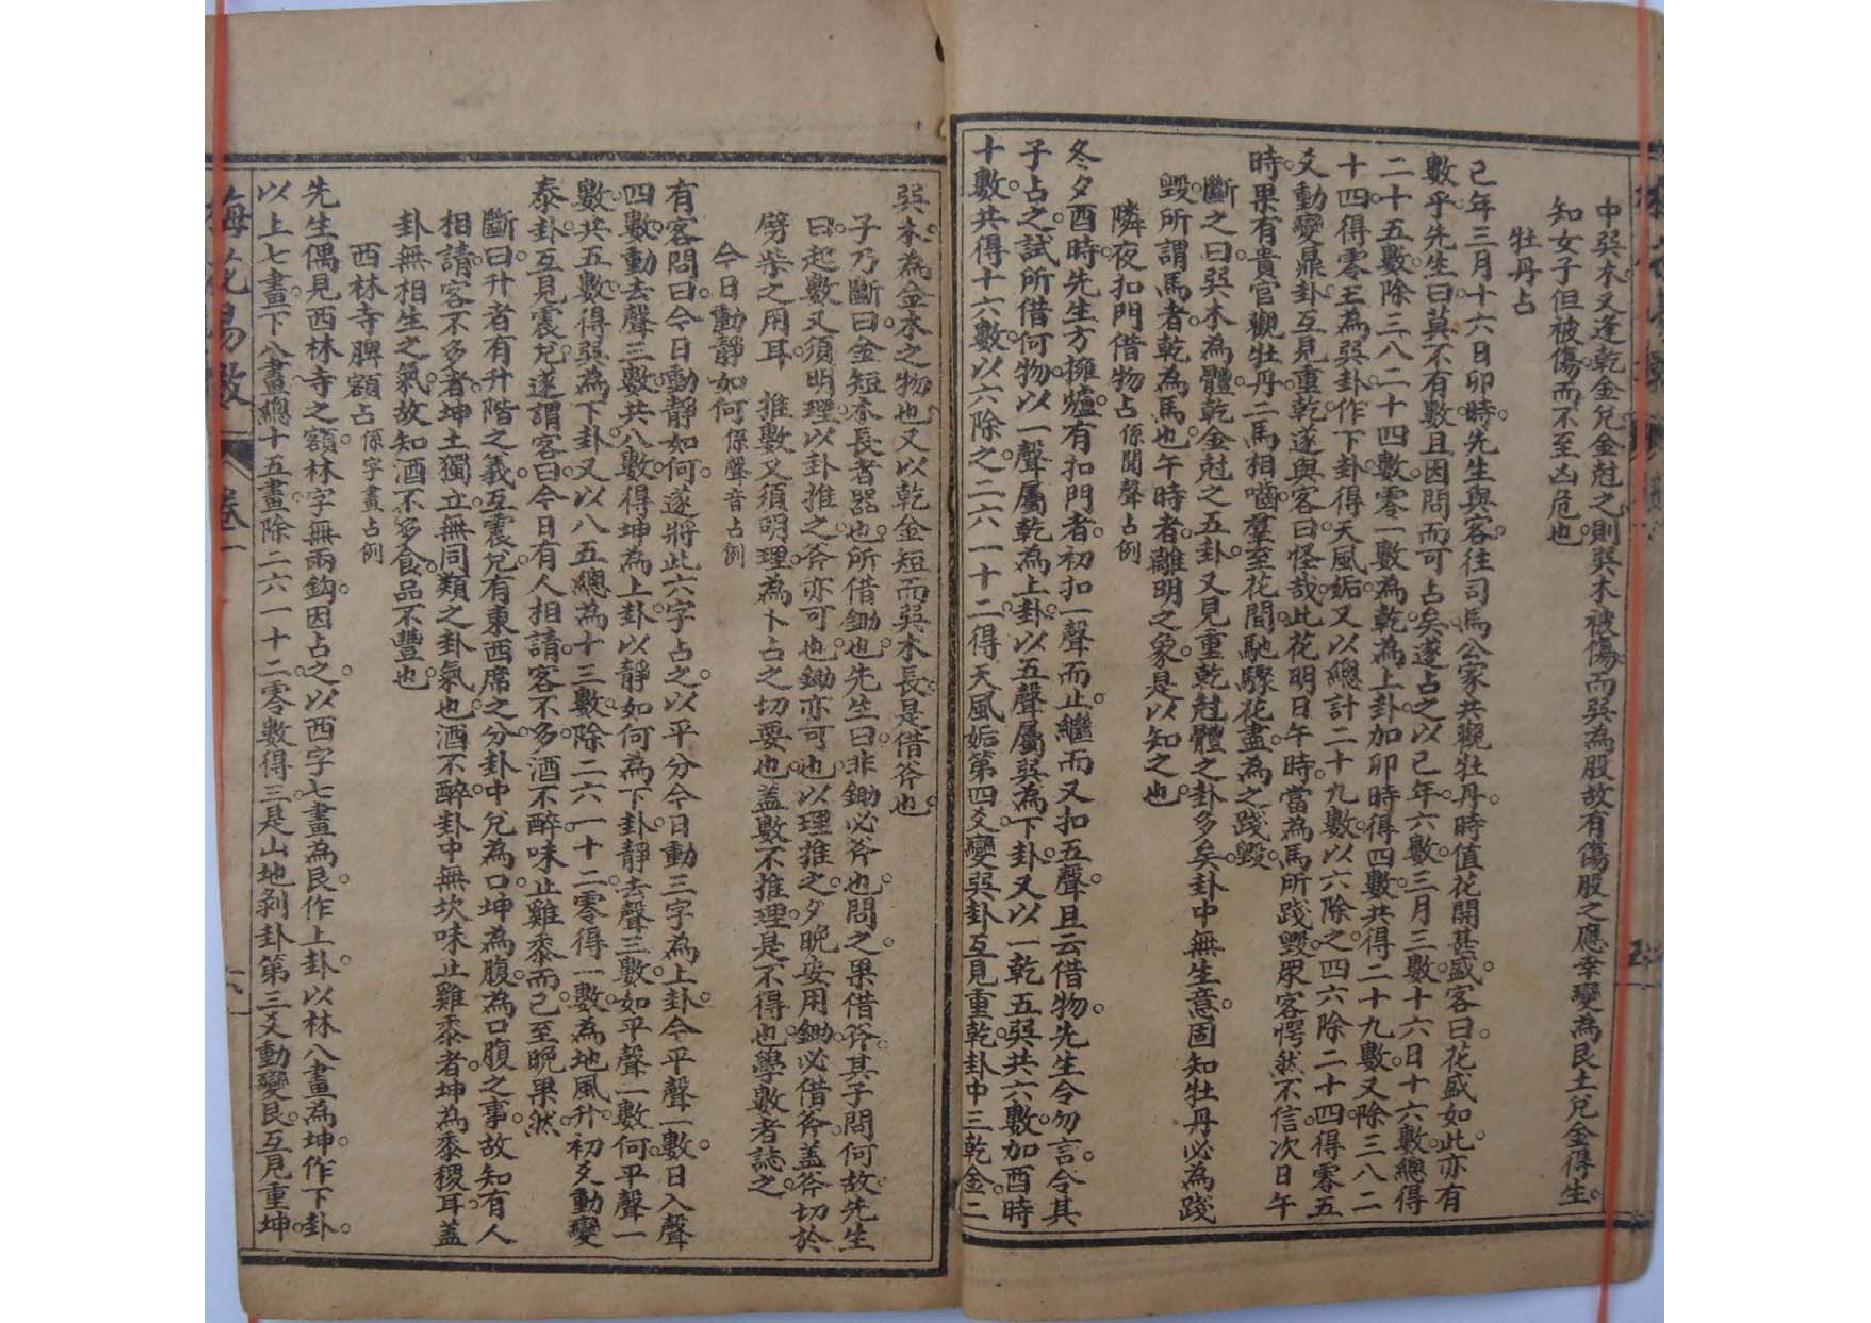 中巽木又逢乾金兌金尅之則巽木被傷而巽為股故有傷股之應幸變為艮土兌金得生
知女子但被傷而不至凶危也
牡丹占
己年三月十六日卯時先生與客往司馬公家共觀牡丹時值花開甚盛客曰花盛如此亦有
數乎先生曰莫不有數且因問而可占矣遂占之以己年六數三月三數十六日十六數總得
二十五數除三八二十四數零一數為乾為上卦加卯時得四數共得二十九數又除三八二
十四得零五為巽卦作下卦得天風姤又以總計二十九數以六除之四六除二十四得零五
爻動變鼎卦互見重乾遂與客曰怪哉此花明日午時當為馬所踐毀眾客愕然不信次日午
時果有貴官觀牡丹二馬相嚙羣至花間馳驟花盡為之踐毀
斷之曰巽木為體乾金尅之五卦又見重乾尅體之卦多矣卦中無生意固知牡丹必為踐
毀所謂馬者乾為馬也午時者離明之象是以知之也
隣夜扣門借物占係聞聲占例
冬夕酉時先生方擁爐有扣門者初扣一聲而止繼而又扣五聲且云借物先生令勿言令其
子占之試所借何物以一聲屬乾為上卦以五聲屬巽為下卦又以一乾五巽共六數加酉時
十數共得十六數以六除之二六一十二得天風姤第四爻變巽卦互見重乾卦中三乾金二
巽木為金木之物也又以乾金短而巽木長是借斧也
子乃斷曰金短木長者器也所借鋤也先生曰非鋤必斧也問之果借斧其子問何故先生
曰起數又須明理以卦推之斧亦可也鋤亦可也以理推之夕晚安用鋤必借斧蓋斧切於
劈柴之用耳　推數又須明理為卜占之切要也蓋數不推理是不得也學數者誌之
今日動靜如何係聲音占例
有客問曰今日動靜如何遂將此六字占之以平分今日動三字為上卦今平聲一數日入聲
四數動去聲三數共八數得坤為上卦以靜如何為下卦靜去聲三數如平聲一數何平聲一
數共五數得巽為下卦又以八五總為十三數除二六一十二零得一數為地風升初爻動變
泰卦互見震兌遂謂客曰今日有人相請客不多酒不醉味止雞黍而已至晚果然
斷曰升者有升階之義互震兌有東西席之分卦中兌為口坤為腹為口腹之事故知有人
相請客不多者坤土獨立無同類之卦氣也酒不醉卦中無坎味止雞黍者坤為黍稷耳蓋
卦無相生之氣故知酒不多食品不豐也
西林寺脾額占係字畫占例
先生偶見西林寺之額林字無兩鈎因占之以西字七畫為艮作上卦以林八畫為坤作下卦
以上七畫下八畫總十五畫除二六一十二零數得三是山地剝卦第三爻動變艮互見重坤
梅花易數
卷一
六